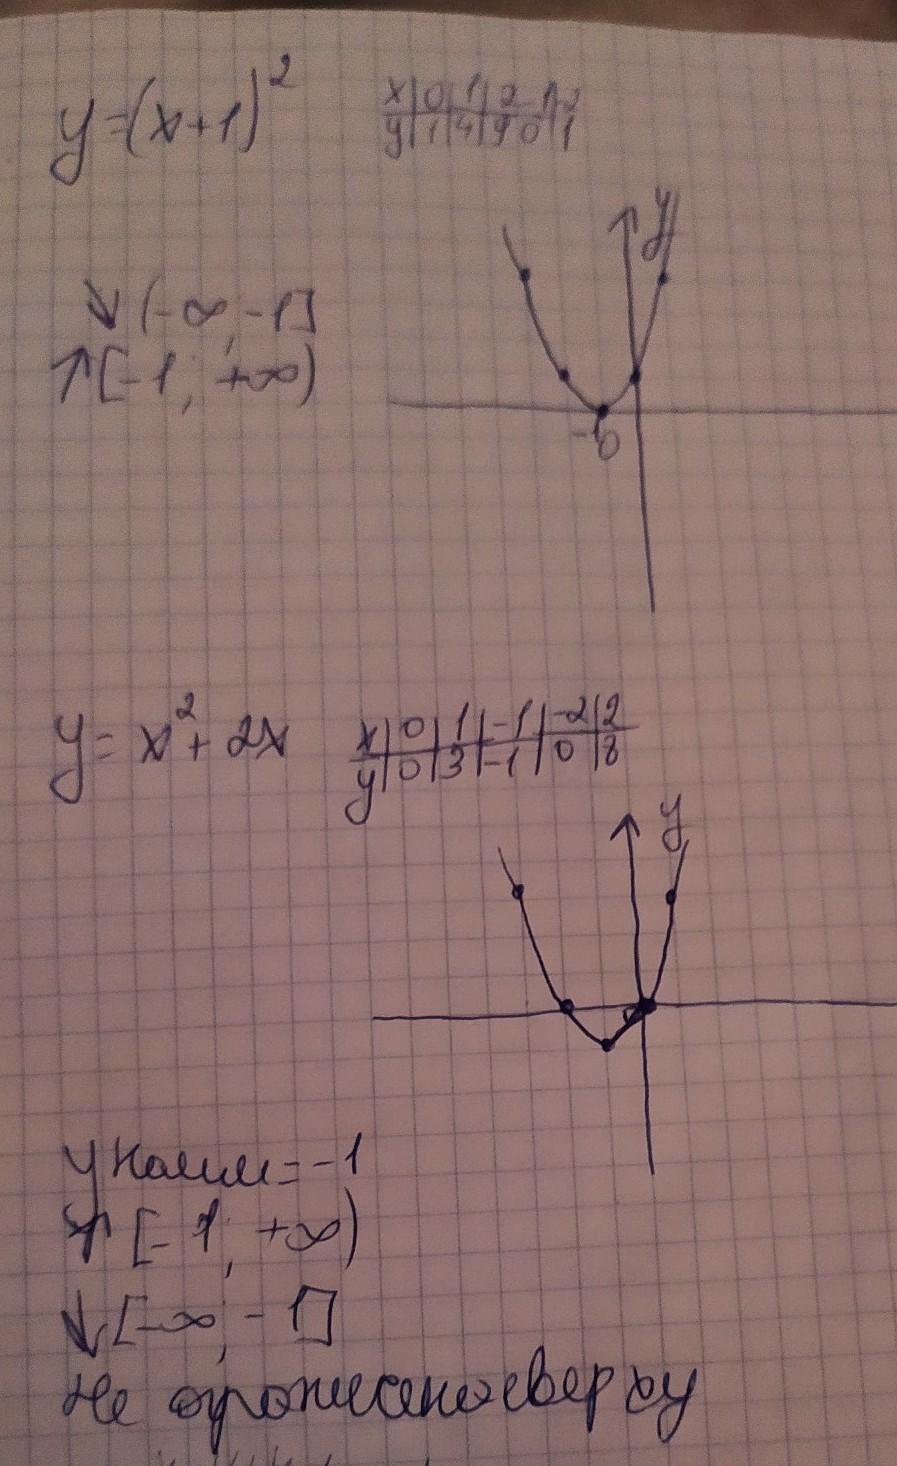 y=(x+1)²
x|0|1|2
y|1|4|9 0|1
y
↓(-∞;-1]
↑[-1; +∞)
y= x²+2x
x|0|1|-1|-2|2
y|0|3|-1|0|8
y
y наим=-1
↑[-1; +∞)
↓[-∞;-1]
Не ограничено сверху